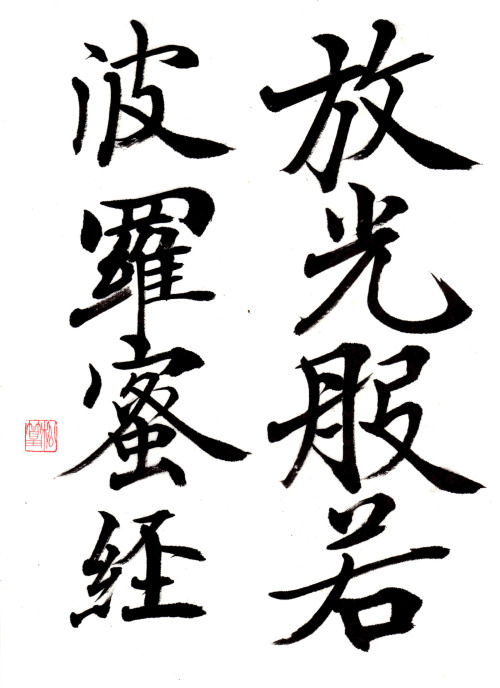 放光般若
波羅蜜経